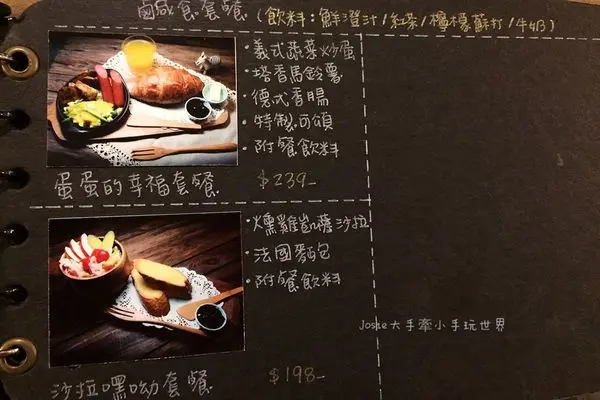 鹹食套餐 (飲料：鮮橙汁/紅茶/檸檬蘇打/牛奶)
・義式蔬菜炒蛋
・塔香馬鈴薯
・德式香腸
・特製可頌
・附餐飲料
蛋蛋的幸福套餐 $239-
・燻雞凱薩沙拉
・法國麵包
・附餐飲料
Josie大手牽小手玩世界
沙拉嘿呦套餐 $198-